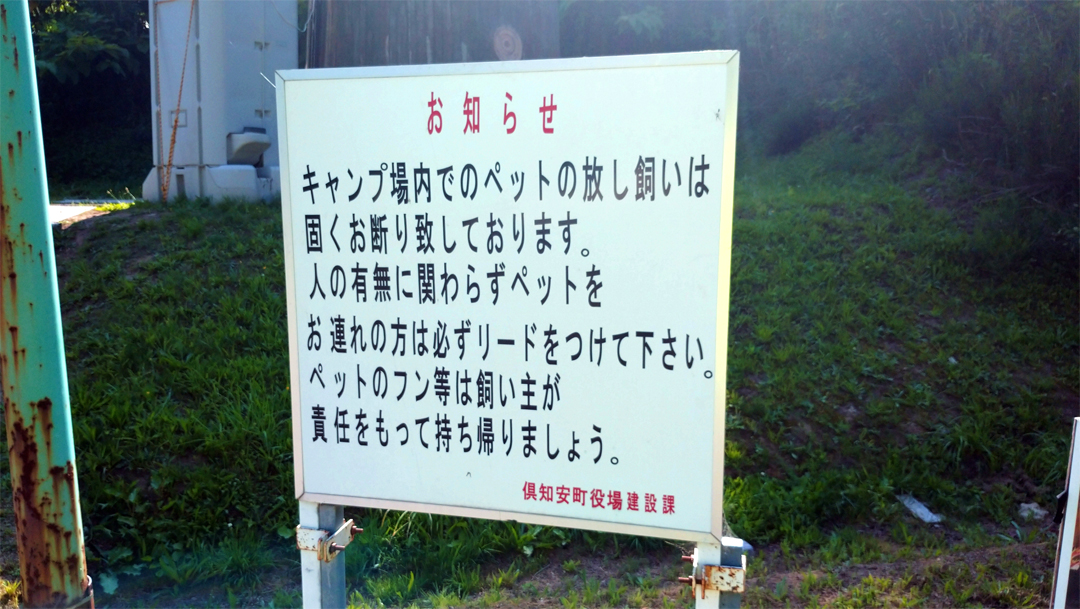 お知らせ
キャンプ場内でのペットの放し飼いは
固くお断り致しております。
人の有無に関わらずペットを
お連れの方は必ずリードをつけて下さい。
ペットのフン等は飼い主が
責任をもって持ち帰りましょう。
倶知安町役場建設課